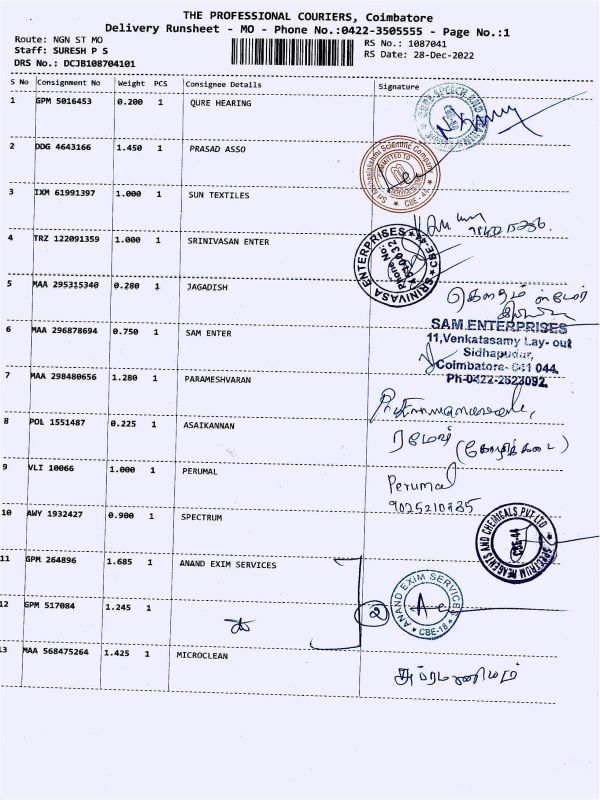 THE PROFESSIONAL COURIERS, Coimbatore
Delivery Runsheet - MO - Phone No.:0422-3505555 - Page No.:1
Route: NGN ST MO
RS No.: 1087041
Staff: SURESH P S
RS Date: 28-Dec-2022
DRS No.: DCJB108704101
S No Consignment No Weight PCS Consignee Details Signature
1 GPM 5016453 0.200 1 QURE HEARING
2 DDG 4643166 1.450 1 PRASAD ASSO
Sri Dhanalakshmi Scientific Company
3 IXM 61991397 1.000 1 SUN TEXTILES
4 TRZ 122091359 1.000 1 SRINIVASAN ENTER
SRINIVASA ENTERPRISES
Phone No.
5 MAA 295315340 0.280 1 JAGADISH
6 MAA 296878694 0.750 1 SAM ENTER
SAM ENTERPRISES
11,Venkatasamy Lay-out
Sidhapudur,
Coimbatore- 641 044.
Ph-0422-2523092.
7 MAA 298480656 1.280 1 PARAMESHVARAN
8 POL 1551487 0.225 1 ASAIKANNAN
ரமேஷ்
9 VLI 10066 1.000 1 PERUMAL
Perumal
10 AWY 1932427 0.900 1 SPECTRUM
SPECTRUM REAGENTS AND CHEMICALS PVT LTD
CBE-44
11 GPM 264896 1.685 1 ANAND EXIM SERVICES
12 GPM 517084 1.245 1
2
ANAND EXIM SERVICES
CBE-18
13 MAA 568475264 1.425 1 MICROCLEAN